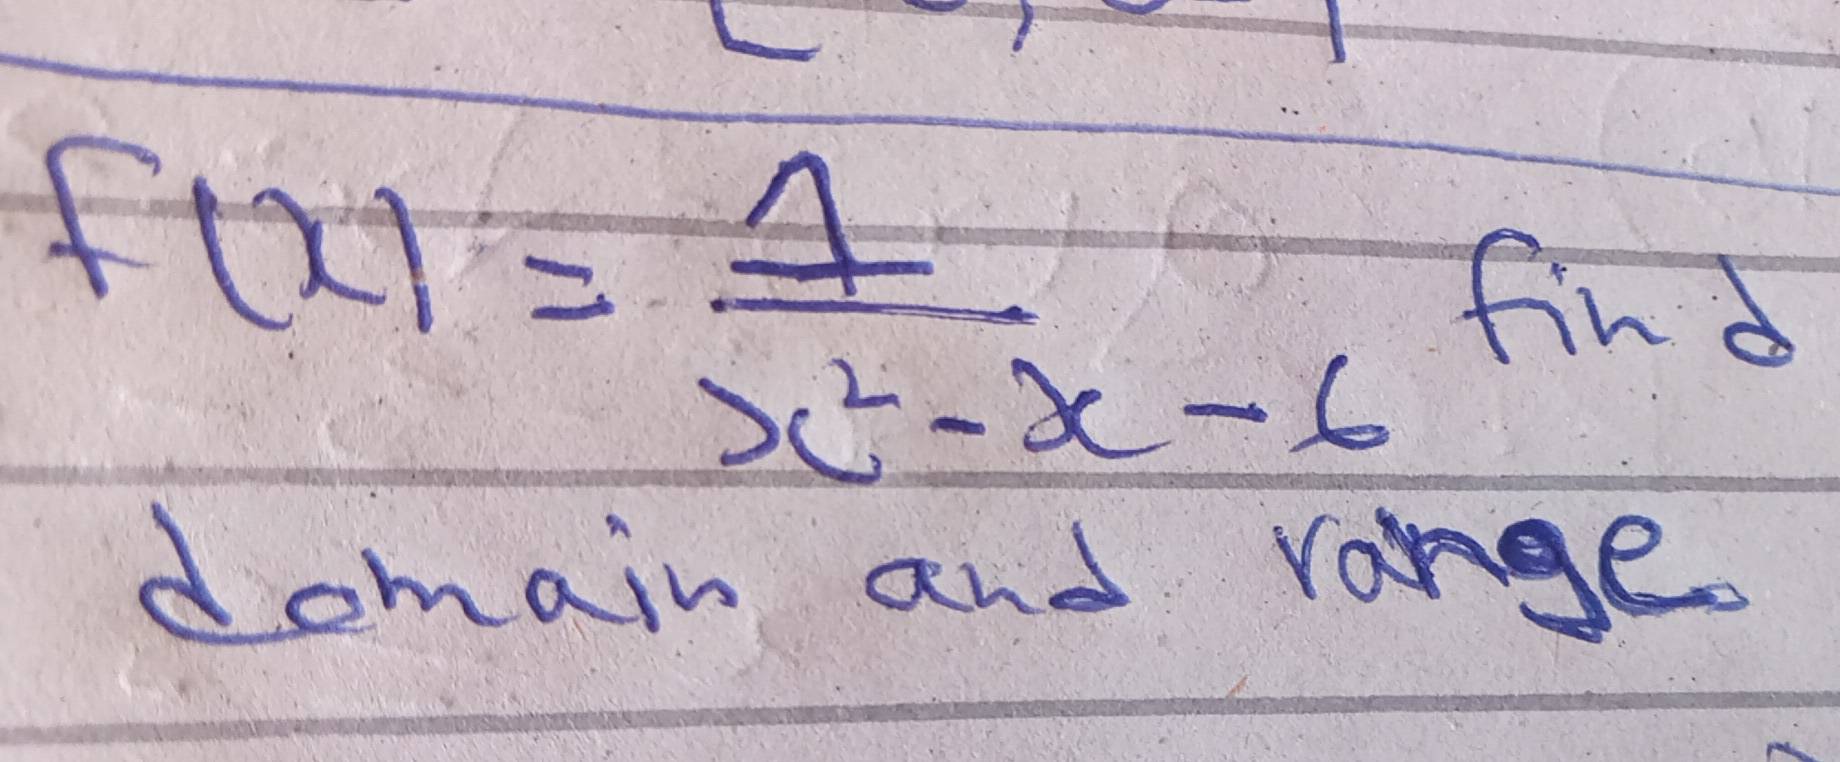 f(x) = 1 / x² - x - 6 find
domain and range.